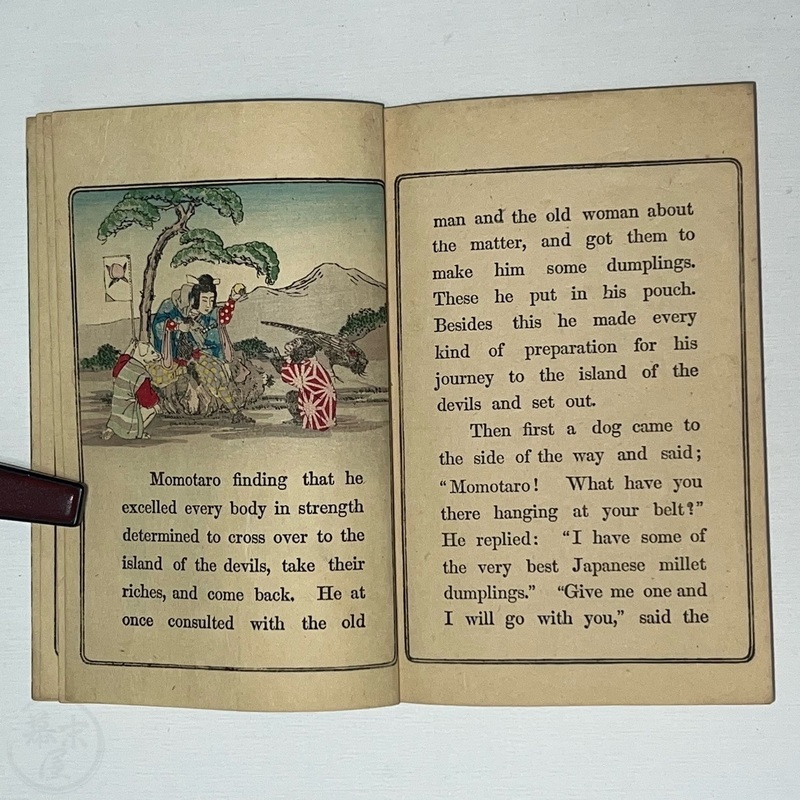 Momotaro finding that he
excelled every body in strength
determined to cross over to the
island of the devils, take their
riches, and come back. He at
once consulted with the old
man and the old woman about
the matter, and got them to
make him some dumplings.
These he put in his pouch.
Besides this he made every
kind of preparation for his
journey to the island of the
devils and set out.
Then first a dog came to
the side of the way and said;
“Momotaro! What have you
there hanging at your belt?”
He replied: “I have some of
the very best Japanese millet
dumplings.” “Give me one and
I will go with you,” said the
幕末屋